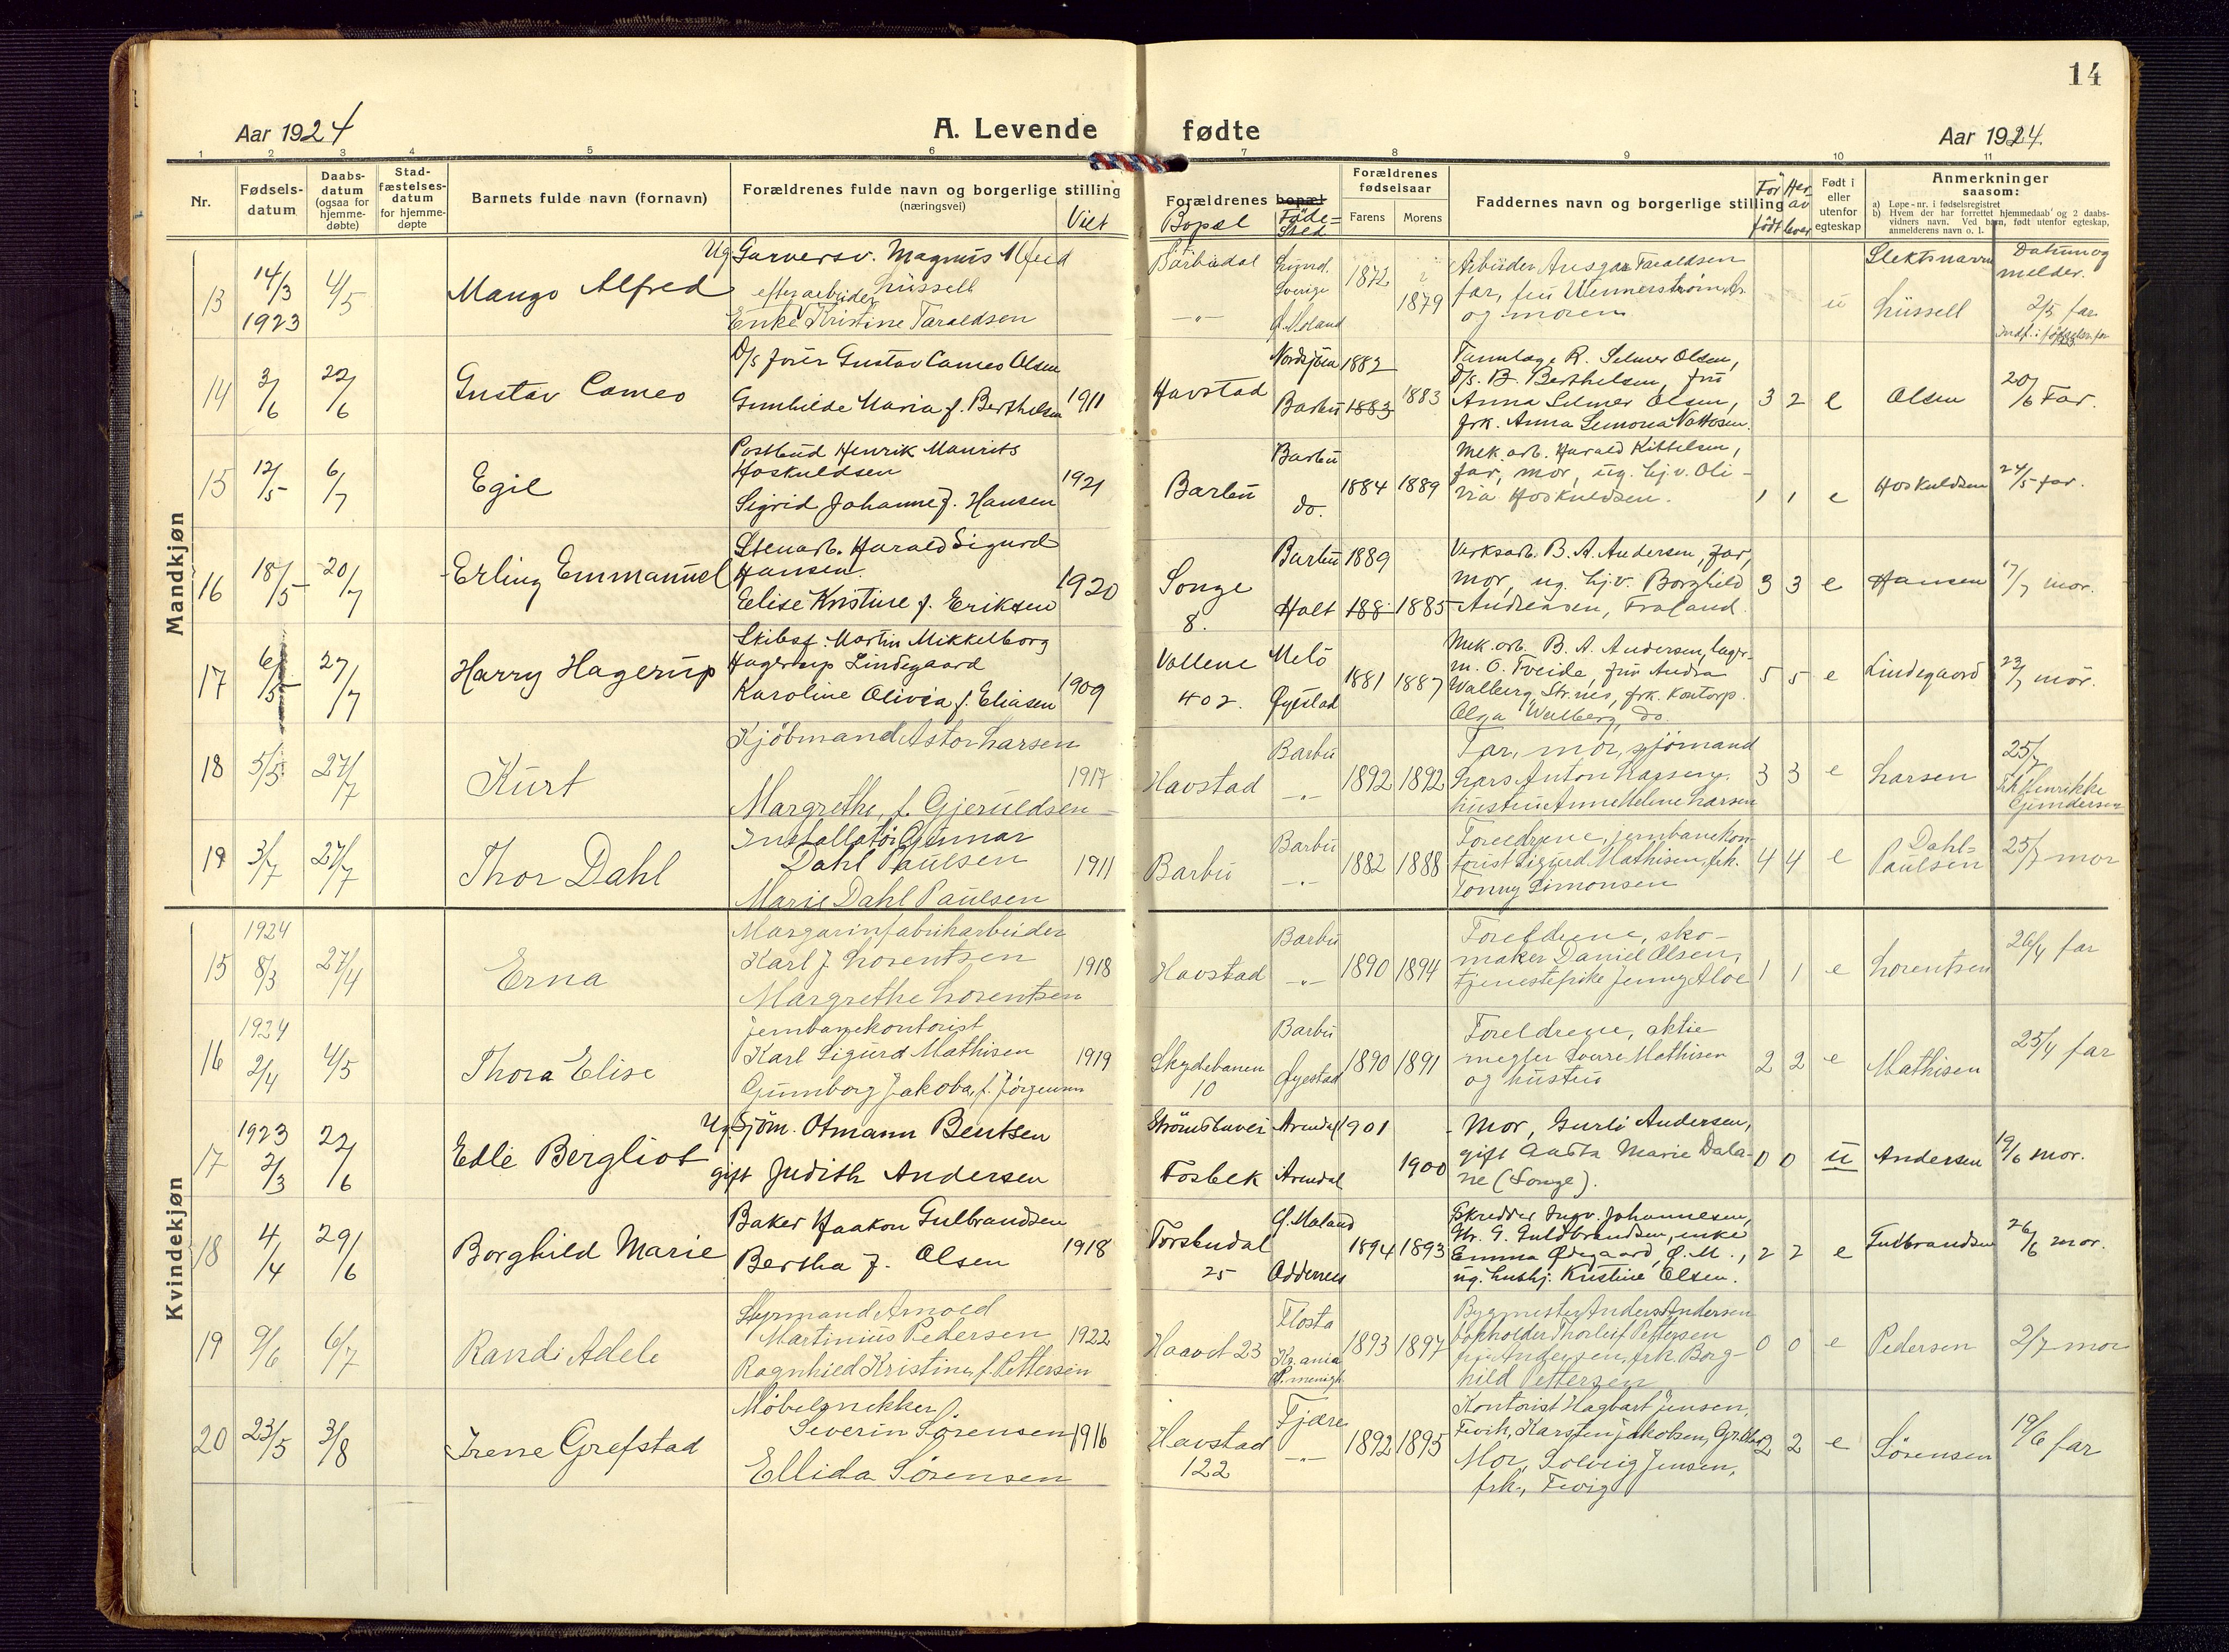 14
Aar 1924
A. Levende fødte
Aar 1924
1 2 3 4 5 6 7 8 9 10 11
Nr.
Fødsels-
datum
Daabs-
datum
(ogsaa for
hjemme-
døbte)
Stad-
fæstelses-
datum
for hjemme-
døpte
Barnets fulde navn (fornavn)
Forældrenes fulde navn og borgerlige stilling
(næringsvei)
Viet
Forældrenes bopæl
Bopæl
Føde-
sted
Forældrenes
fødselsaar
Farens
Morens
Faddernes navn og borgerlige stilling
Før
født
Her-
av
lever
Født i
eller
utenfor
egteskap
Anmerkninger
saasom:
a) Løpe-nr. i fødselsregistret
b) Hvem der har forrettet hjemmedaab og 2 daabs-
vidners navn. Ved barn, født utenfor egteskap,
anmelderens navn o. l.
Slektsnavn
Datum og
melder.
Mandkjøn
13
14/3
1923
4/5
Mango Alfred
Ug. Garversv. Magnus Alfred
Lüssell
efter arbeider
Enke Kristine Taraldsen
Barbudal
-"-
Lund.
Sverige
Ø. Moland
1872
1879
Arbeider Ansgar Taraldsen
far, fru Wennerstrøm
og moren
u
Lüssell
2/5 far
14
3/6
22/6
Gustav Cameo
D/s fører Gustav Cameo Olsen
Gunhilde Maria f. Berthelsen
1911
Havstad
Nordsjøen
Barbu
1882
1883
1883
Tannlæge R. Selmer Olsen,
D/s. B. Berthelsen, fru
Anna Selmer Olsen,
frk. Anna
3 2 e
Olsen
20/6 Far.
15
12/5
6/7
Egil
Postbud Henrik Maurits
Hoskuldsen
Sigrid Johanne f. Hansen
1921
Barbu
Barbu
do.
1884 1889
Mek. arb. Harald Kittelsen,
far, mor, ug. hj.v. Oli-
via Hoskuldsen.
1 1 e
Hoskuldsen
24/5 far.
16
18/5
20/7
Erling Emmanuel
Stenarb. Harald Sigurd
Hansen.
Elise Kristine f. Eriksen
1920
Songe
8.
Barbu
Holt
1889
188
1885
Verksarb. B. A. Andersen, far,
mor, ug. hj.v. Borghild
Andreasen, Froland.
3 3 e
Hansen
17/7 mor.
17
6/5
27/7
Harry Hagerup
Skibsf. Martin Mikkelborg
Hagerup Lindegaard
Karoline Olivia f. Eliasen
1909
Vollene
402.
Melö
Øyestad
1881 1887
Mek. arb. B. A. Andersen, lager-
m. O. Tveide, fru Andra
Walberg, Str.nes, frk. kontorp.
Olga Walberg, do.
5 5 e
Lindegaard
23/7 mor.
18
5/5
27/7
Kurt
Kjöbmand Astor Larsen
Margrethe, f. Gjeruldsen
1917
Havstad
Barbu
-"-
1892 1892
Far, mor, sjömand
Lars Anton Larsen,
hustru Anne Helene Larsen
3 3 e
Larsen
25/7
frk Henrikke
Gundersen
19
3/7
27/7
Thor Dahl
Installatör Gunnar
Dahl Paulsen
Marie Dahl Paulsen
1911
Barbu
Barbu
-"-
1882 1888
Foreldrene, jernbanekon-
torist Sigurd Mathisen, frk.
Tonny Simonsen
4 4 e
Dahl-
Paulsen
25/7 mor
Kvindekjøn
15
1924
8/3
27/4
Erna
Margarinfabrikarbeider
Karl J. Lorentsen
Margrethe Lorentsen
1918
Havstad
Barbu
-"-
1890 1894
Foreldrene, sko-
maker Daniel Olsen,
tjenestepike Jenny Aloe
1 1 e
Lorentsen
26/4 far
16
1924
2/4
4/5
Thora Elise
jernbanekontorist
Karl Sigurd Mathisen
Gunnborg Jakoba, f. Jörgensen
1919
Skydebanen
10
Barbu
Øyestad
1890 1891
Foreldrene, aktie-
megler Sverre Mathisen
og hustru
2 2 e
Mathisen
25/4 far
17
1923
2/3
22/6
Edle Bergliot
Ug. Sjöm. Otmann Bentsen
gift Judith Andersen
Strömsbuvei
Fosbek
Arendal
Arendal
1901
1900
Mor, Gurli Andersen,
gift Aasta Marie Dala-
ne (Songe).
0 0 u
Andersen
19/6 mor.
18
4/4
29/6
Borghild Marie
Baker Haakon Gulbrandsen
Bertha f. Olsen
1918
Torskudal
25
Ø. Moland
Oddernes
1894 1893
Skredder Ingv. Johannesen,
Hr. G. Guldbrandsen, enke
Emma Ødegaard, Ø. M.,
ug. hushj. Kristine Olsen.
2 2 e
Gulbrandsen
26/6 mor.
19
9/6
6/7
Randi Adele
Styrmand Arnold
Martinius Pedersen
Ragnhild Kristine, f. Pettersen
1922
Haavet 23
Flosta
Kr.ania
1893 1897
Bygmester Anders Andersen
bokholder Thorleif Pettersen
fru Andersen, frk. Borg-
hild Pettersen
0 0 e
Pedersen
2/7 mor
20
23/5
3/8
Irene Grefstad
Möbelsnekker
Severin Sörensen
Ellida Sörensen
1916
Havstad
122
Fjære
-"-
1892 1895
Kontorist Hagbart Jensen,
Fevik, Karsten Jakobsen,
Mor, Solveig Jensen,
frk., Fevig
2 2 e
Sörensen
19/6 far